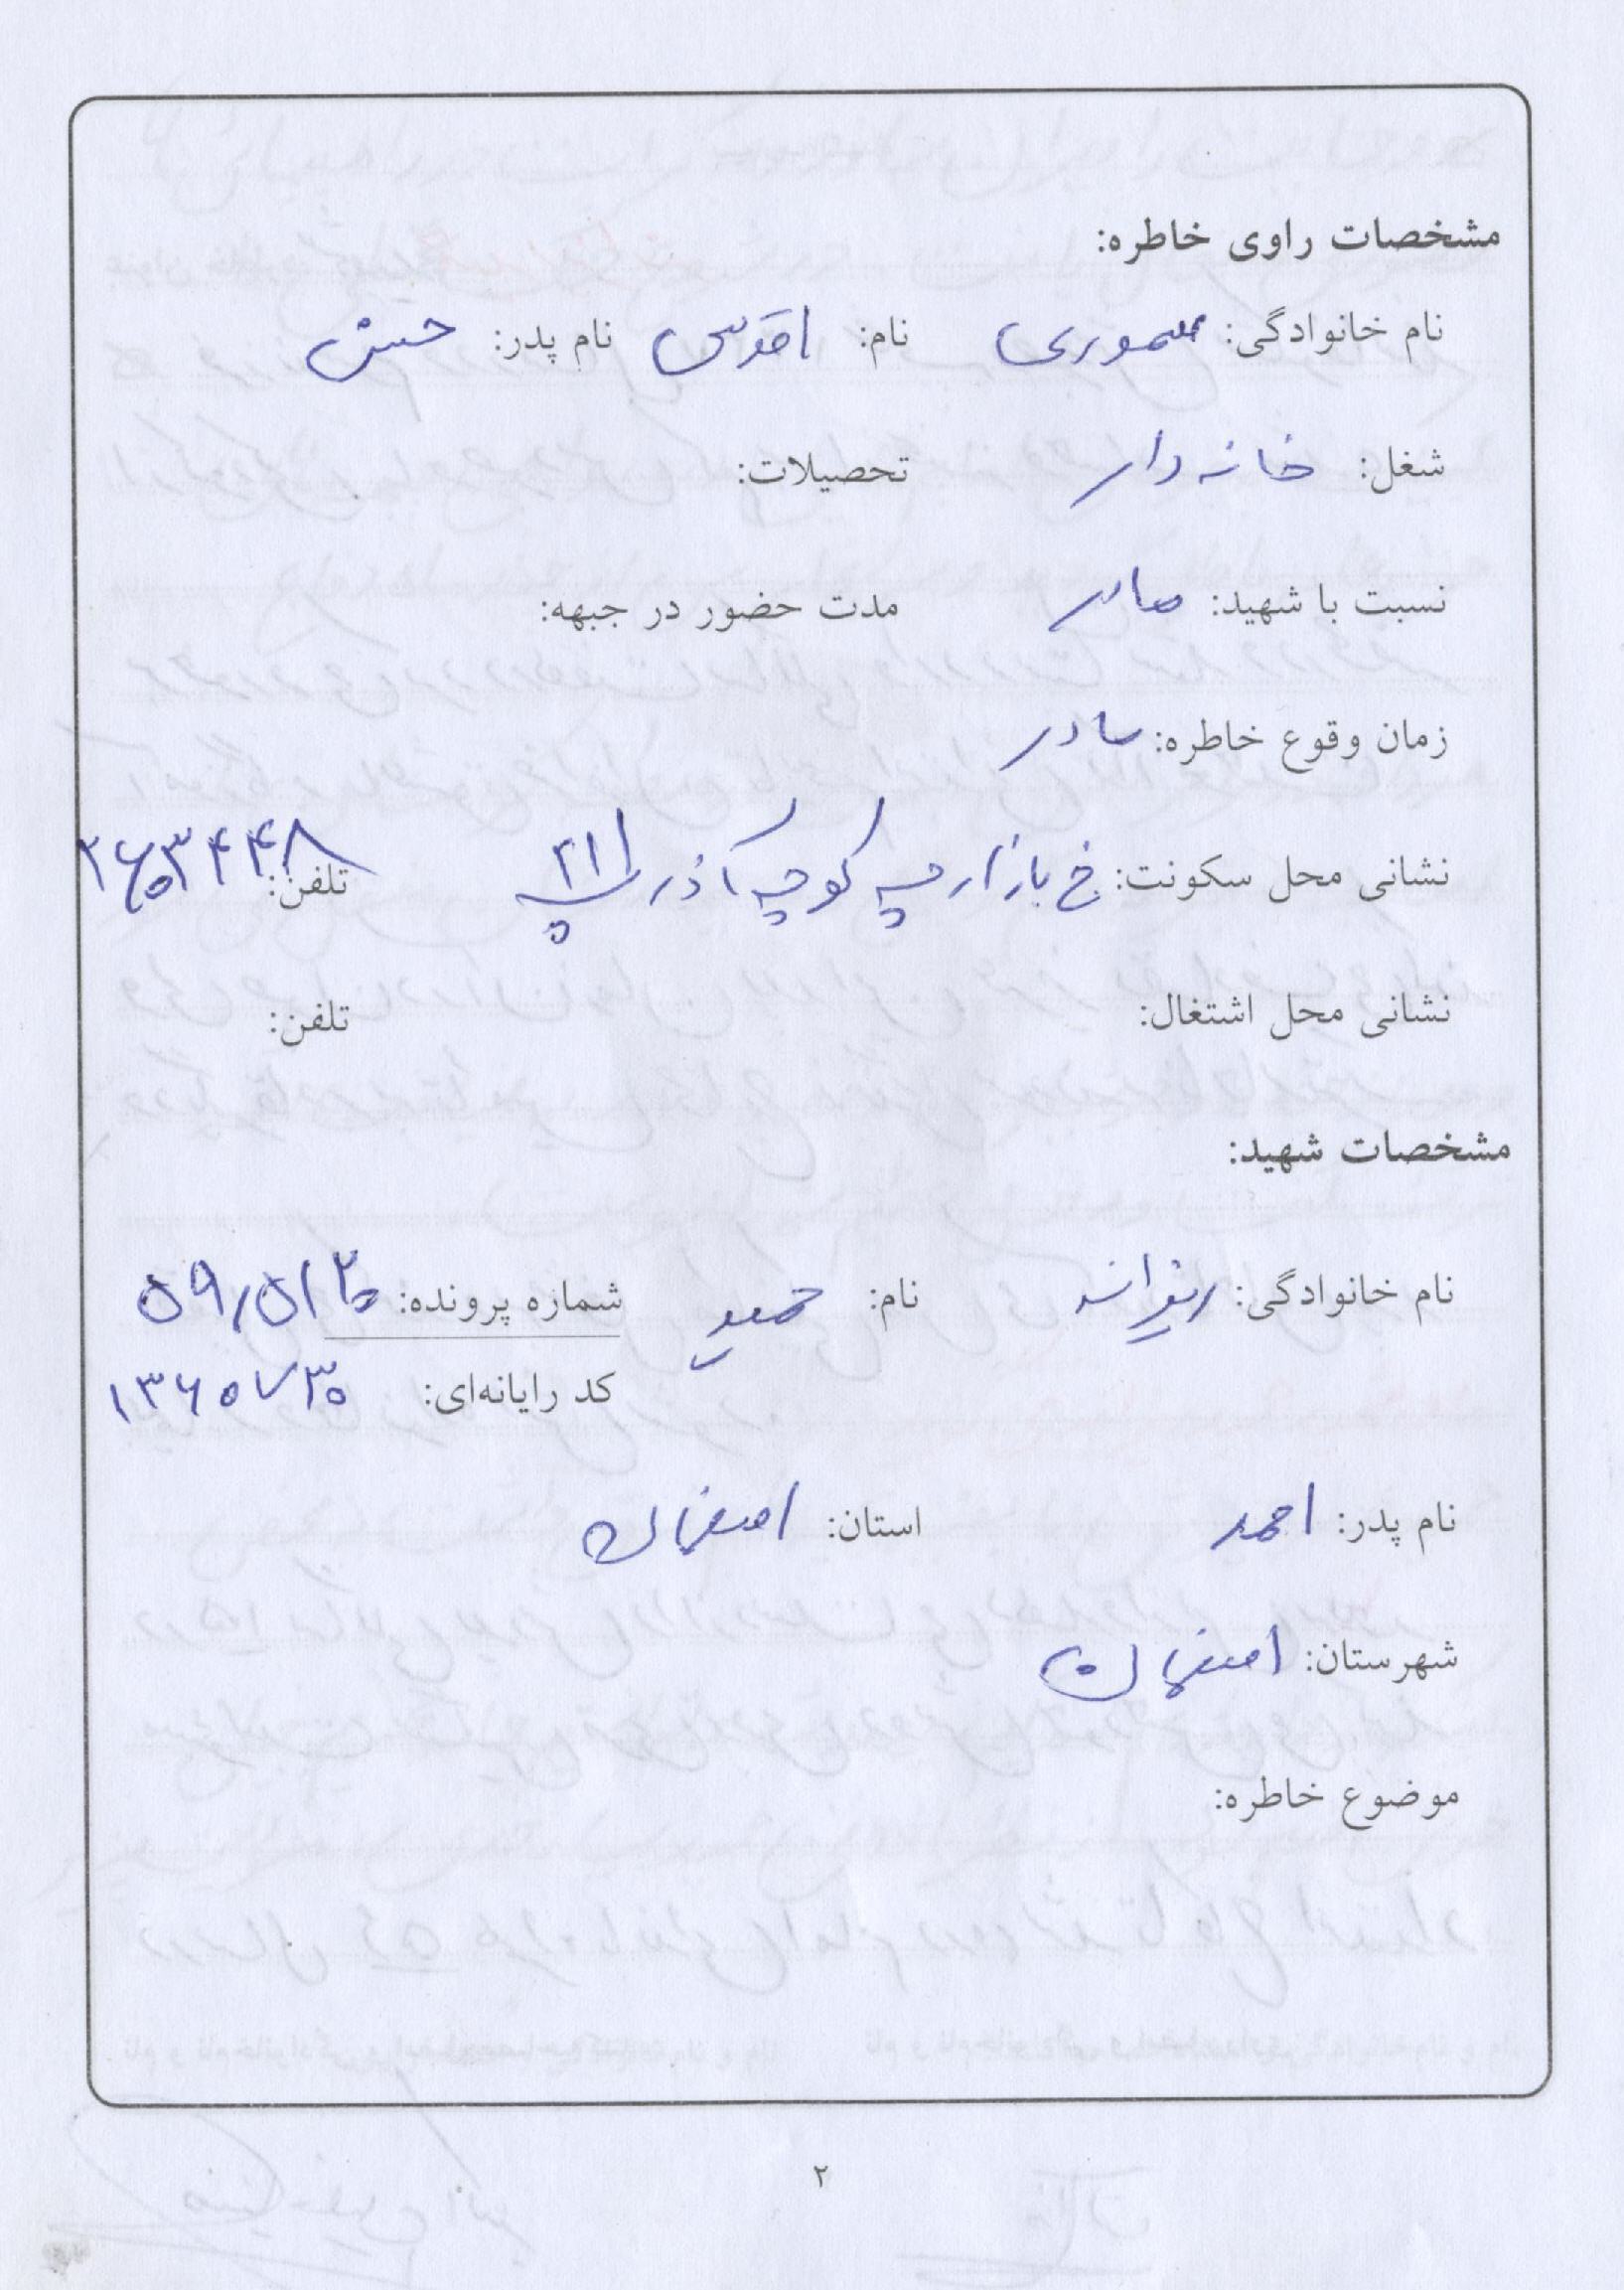 مشخصات راوی خاطره:
نام خانوادگی: سموری نام: اقدس نام پدر: حسن
شغل: خانه دار تحصیلات:
نسبت با شهید: مادر مدت حضور در جبهه:
زمان وقوع خاطره: مادر
نشانی محل سکونت: خ بازارچه کوچه آذر پ ۲۱۱ تلفن:
نشانی محل اشتغال: تلفن:
مشخصات شهید:
نام خانوادگی: نام: حمید شماره پرونده:
کد رایانه‌ای: ۱۳۶۰۷۳۰
نام پدر: احمد استان: اصفهان
شهرستان: اصفهان
موضوع خاطره:
۲